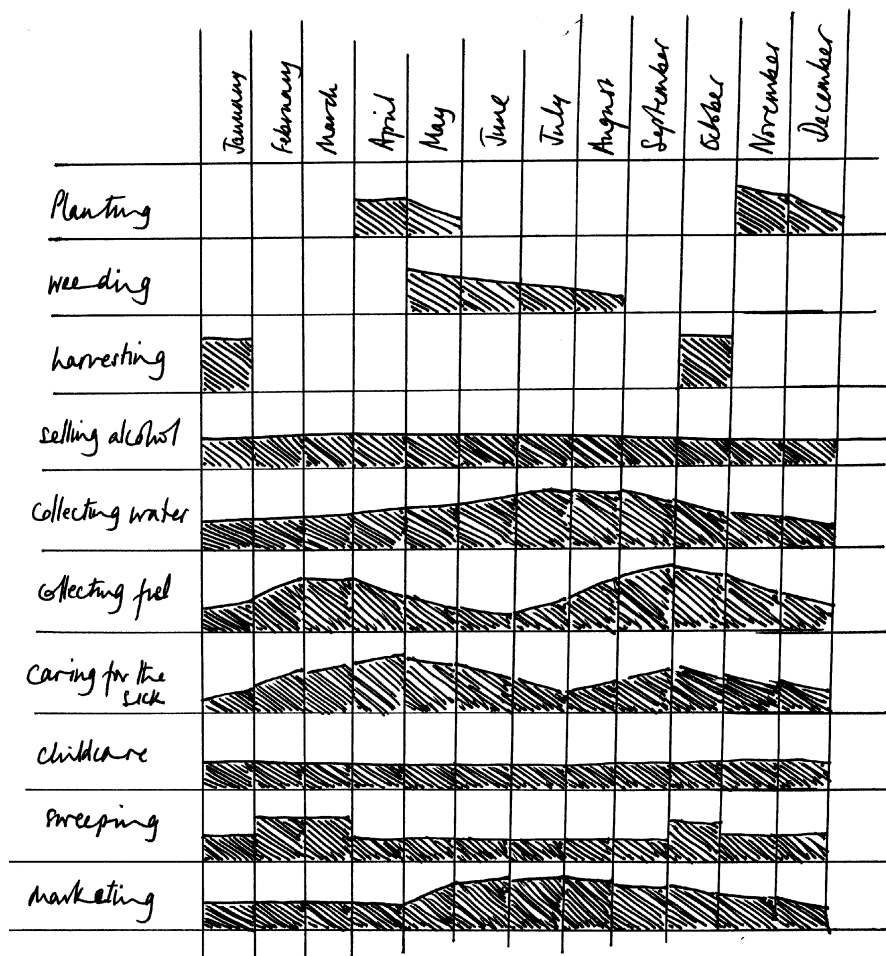 January
February
March
April
May
June
July
August
September
October
November
December
Planting
weeding
harvesting
selling alcohol
collecting water
collecting fuel
caring for the
sick
childcare
sweeping
marketing